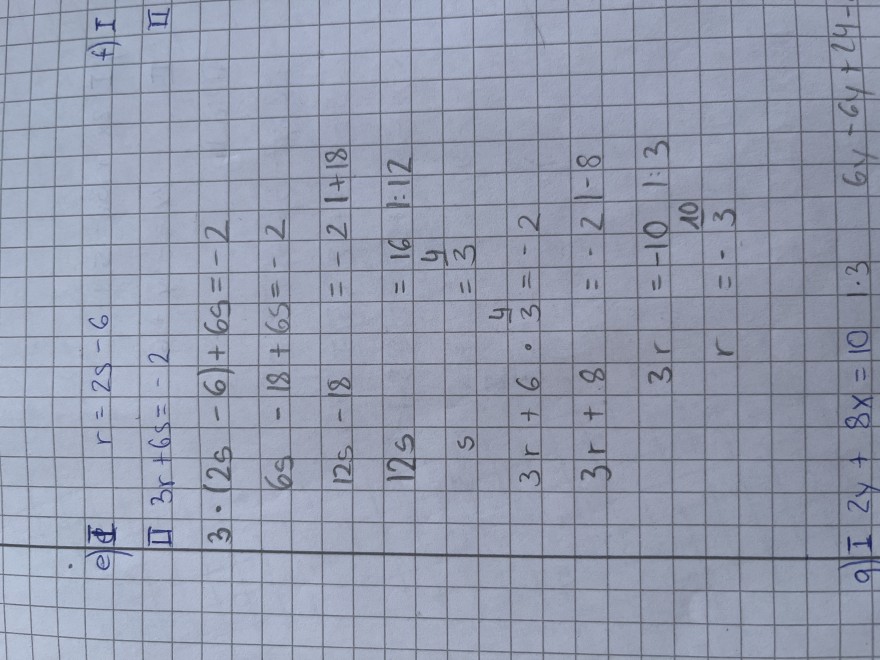 e) I r = 2s - 6 f) I
II 3r + 6s = - 2 II
3 · (2s - 6) + 6s = - 2
6s - 18 + 6s = - 2
12s - 18 = - 2 | + 18
12s = 16 | : 12
s = 4/3
3r + 6 · 4/3 = - 2
3r + 8 = - 2 | - 8
3r = -10 | : 3
r = - 10/3
g) I 2y + 8x = 10 | · 3 6y - 6y + 24 -